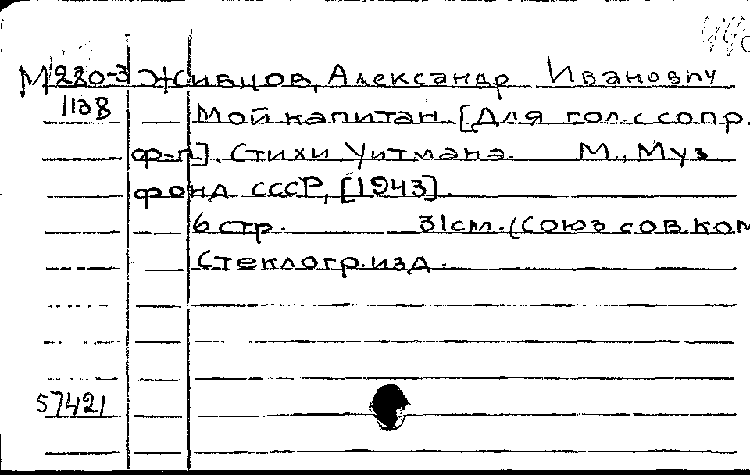 М280-3 Живцов, Александр Иванович
1138 Мой капитан. [Для гол. с сопр.
ф-п]. Стихи Уитмана. М., Муз
фонд СССР, [1943].
6 стр. 31см. (Союз сов. ком
Стеклогр. изд.
57421